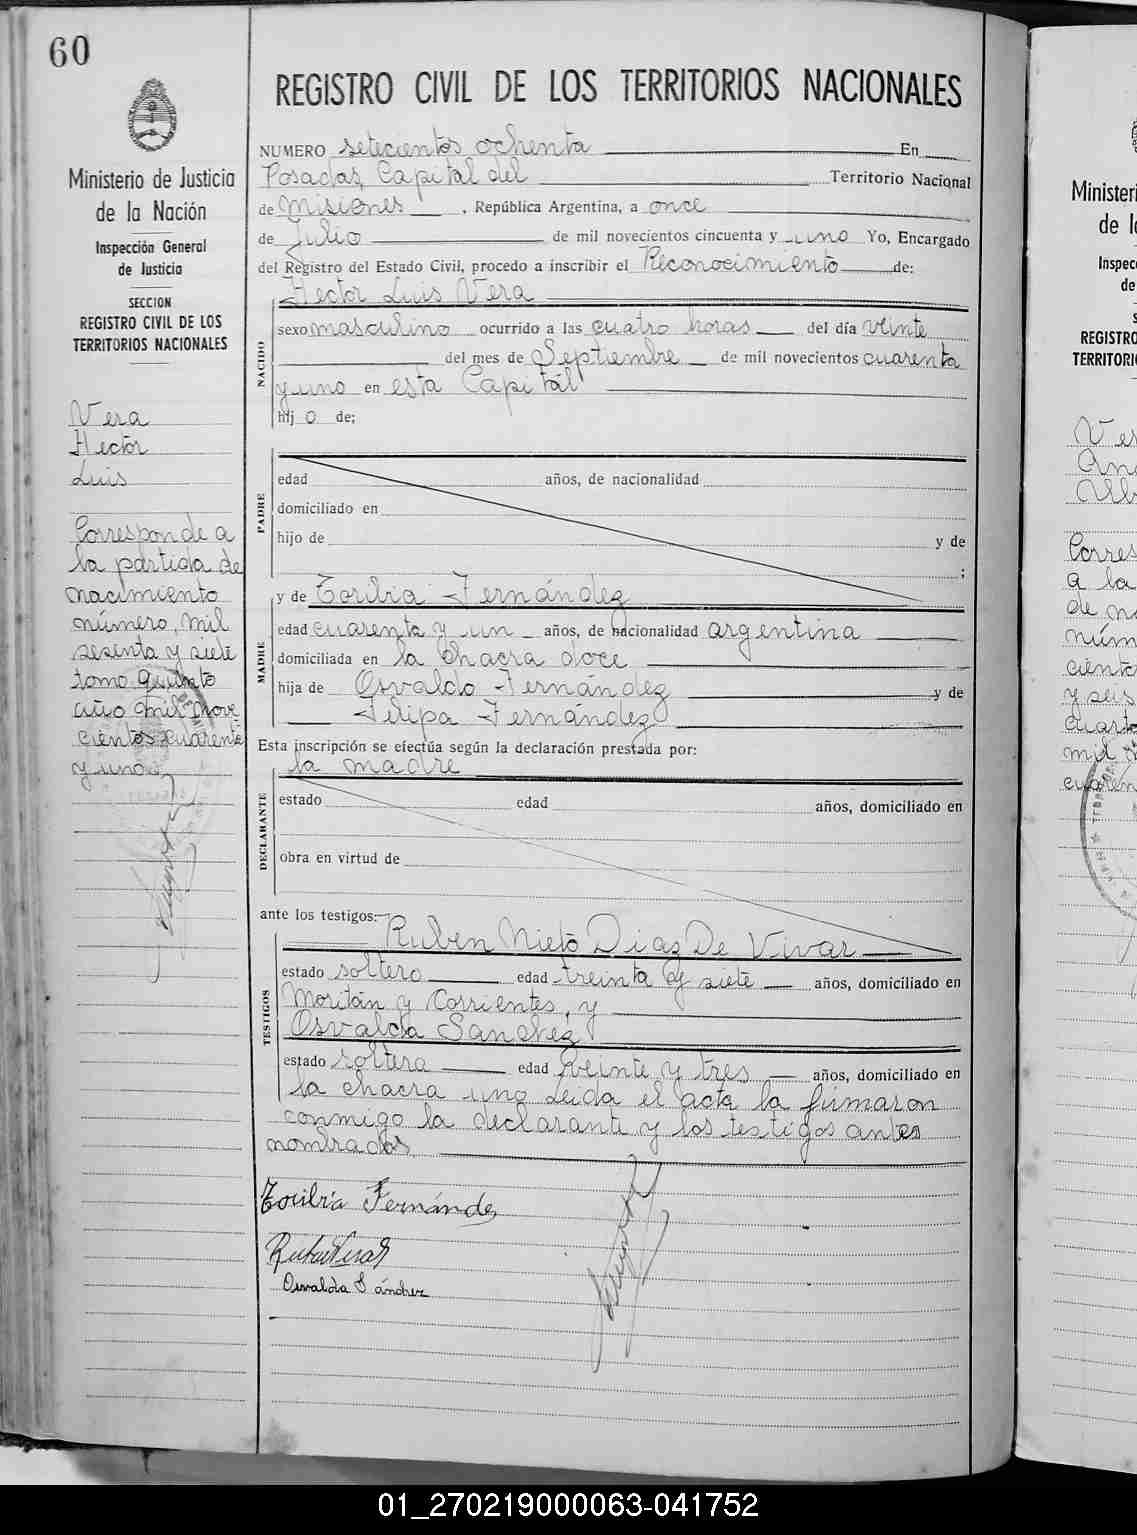 60
REGISTRO CIVIL DE LOS TERRITORIOS NACIONALES
Ministerio de Justicia
de la Nación
Inspección General
de Justicia
SECCION
REGISTRO CIVIL DE LOS
TERRITORIOS NACIONALES
Vera
Hector
Luis
Corresponde a
la partida de
nacimiento
número, mil
sesenta y siete
tomo quinto
año mil nove
cientos cuarenta
y uno
NUMERO setecientos ochenta En
Posadas, Capital del Territorio Nacional
de Misiones , República Argentina, a once
de Julio de mil novecientos cincuenta y uno Yo, Encargado
del Registro del Estado Civil, procedo a inscribir el Reconocimiento de:
Hector Luis Vera
NACIDO
sexo masculino ocurrido a las cuatro horas del día veinte
del mes de Septiembre de mil novecientos cuarenta
y uno en esta Capital
hij o de;
PADRE
edad años, de nacionalidad
domiciliado en
hijo de y de
;
y de Toribia Fernández
MADRE
edad cuarenta y un años, de nacionalidad argentina
domiciliada en la chacra doce
hija de Osvaldo Fernández y de
Felipa Fernández
Esta inscripción se efectúa según la declaración prestada por:
la madre
DECLARANTE
estado edad años, domiciliado en
obra en virtud de
ante los testigos:
Ruben Nieto Diaz De Vivar
TESTIGOS
estado soltero edad treinta y siete años, domiciliado en
Moritán y Corrientes, y
Osvalda Sanchez
estado soltera edad veinte y tres años, domiciliado en
la chacra uno Leída el acta la firmaron
conmigo la declarante y los testigos antes
nombrados.
Toribia Fernández
Osvalda Sánchez
Ministeri
de l
Inspec
de
S
REGISTRO
TERRITORI
Corres
a la
de na
núm
ciento
y seis
cuarto
mil
cuaren
01_270219000063-041752